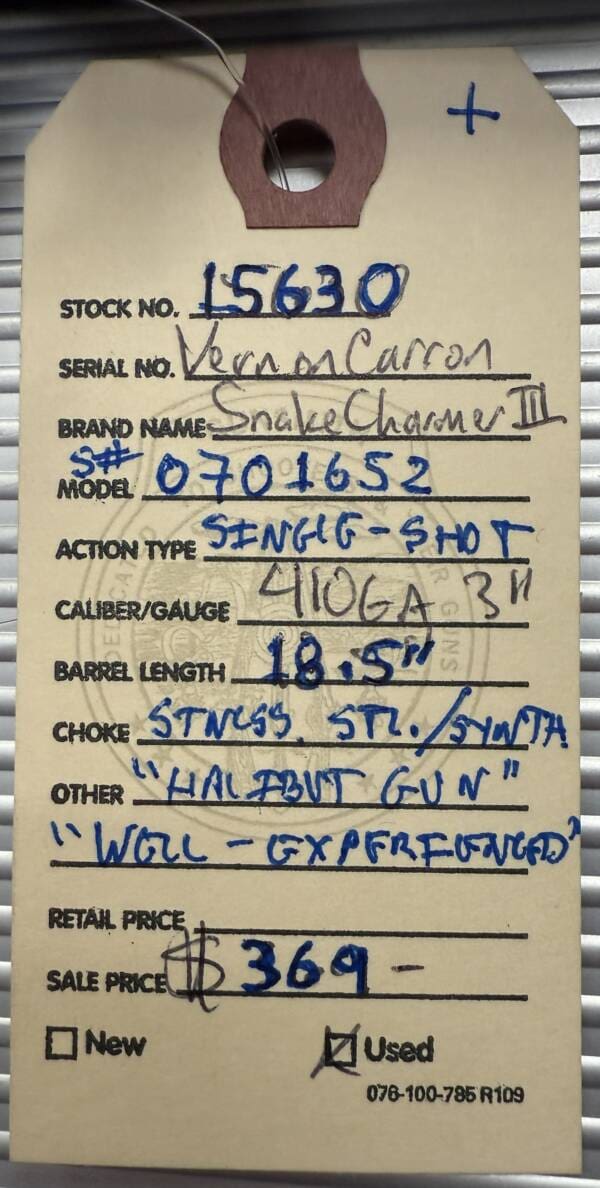 +
STOCK NO. 15630
SERIAL NO. Vernon Carron
BRAND NAME Snake Charmer III
S#
MODEL 0701652
ACTION TYPE SINGLE-SHOT
CALIBER/GAUGE 410GA 3"
BARREL LENGTH 18.5"
CHOKE STNLSS. STL./SYNTH
OTHER "HALIBUT GUN"
"WELL-EXPERIENCED"
RETAIL PRICE
SALE PRICE $369-
New Used
076-100-785 R109